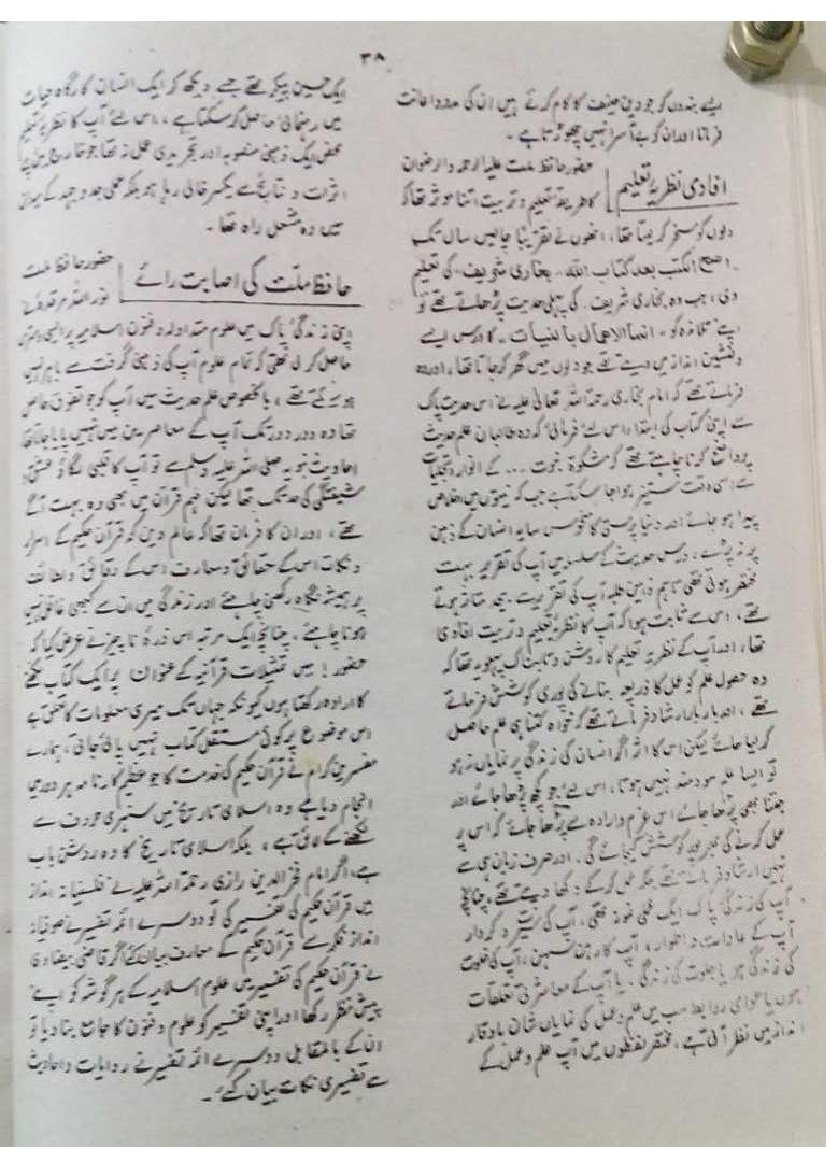 ۳۸
ایسے بندوں کو جو دین حنیف کا کام کرتے ہیں ان کی مدد و اعانت
فرماتا اور ان کو بے آسرا نہیں چھوڑتا ہے۔
افادی نظریۂ تعلیم
حضور حافظ ملت علیہ الرحمہ والرضوان
کا طریقۂ تعلیم و تربیت اتنا موثر تھا کہ
دلوں کو مسخر کر لیتا تھا، انھوں نے تقریباً چالیس سال تک
اصح الکتب بعد کتاب اللہ۔ بخاری شریف۔ کی تعلیم
دی، جب وہ بخاری شریف۔ کی پہلی حدیث پڑھاتے تھے تو
اپنے تلامذہ کو۔ انما الاعمال بالنیات۔ کا درس ایسے
دلنشین انداز میں دیتے تھے جو دلوں میں گھر کر جاتا تھا، اور وہ
فرماتے تھے کہ امام بخاری رحمۃ اللہ تعالیٰ علیہ نے اس حدیث پاک
سے اپنی کتاب کی ابتدا، اس لئے فرمائی کہ وہ طالبان علم حدیث
پر واضح کرنا چاہتے تھے کہ مشکوۃ نبوت ... کے انوار و تجلیات
سے اسی وقت مستنیر ہوا جا سکتا ہے جب کہ نیتوں میں اخلاص
پیدا ہو جائے اور دنیا پرستی کا منحوس سایہ انسان کے ذہن
پر نہ پڑے، درس حدیث کے سلسلہ میں آپ کی تقریر بہت
مختصر ہوتی تھی تاہم ذہین طلبہ آپ کی تقریر سے بیحد متاثر ہوتے
تھے، اس سے ثابت ہوا کہ آپ کا نظریۂ تعلیم و تربیت افادی
تھا، اور آپ کے نظریۂ تعلیم کا روشن و تابناک پہلو یہ تھا کہ
وہ حصول علم کو عمل کا ذریعہ بنانے کی پوری کوشش فرماتے
تھے، اور بار بار ارشاد فرماتے تھے کہ خواہ کتنا ہی علم حاصل
کر لیا جائے لیکن اس کا اثر اگر انسان کی زندگی پر نمایاں نہ ہو
تو ایسا علم سود مند نہیں ہوتا، اس لئے جو کچھ پڑھا جائے اور
جتنا بھی پڑھا جائے اس عزم و ارادہ سے پڑھا جائے کہ اس پر
عمل کرنے کی بھرپور کوشش کیجائے گی، اور صرف زبان ہی سے
نہیں ارشاد فرماتے تھے بلکہ عمل کرکے دکھا دیتے تھے، چنانچہ
آپ کی زندگی پاک ایک عملی نمونہ تھی، آپ کی سیرت و کردار
آپ کے عادات و اطوار، آپ کا رہن سہن، آپ کی خلوت
کی زندگی ہو یا جلوت کی زندگی، یا آپ کے معاشرتی تعلقات
ہوں یا عوامی روابط سب میں علم و عمل کی نمایاں شان باوقار
انداز میں نظر آتی ہے، مختصر لفظوں میں آپ علم و عمل کے
ایک حسین پیکر تھے جسے دیکھ کر ایک انسان کارگاہ حیات
میں رہنمائی حاصل کر سکتا ہے، اس لئے آپ کا نظریۂ تعلیم
محض ایک ذہنی منصوبہ اور تجریدی عمل نہ تھا جو خارج میں اپنے
اثرات و نتائج سے یکسر خالی رہا ہو بلکہ عملی جدوجہد کے میدان
میں وہ مشعل راہ تھا۔
حافظ ملت کی اصابت رائے
حضور حافظ ملت
نور اللہ مرقدہٗ نے
اپنی زندگی پاک میں علوم متداولہ و فنون اسلامیہ پر ایسی دسترس
حاصل کر لی تھی کہ تمام علوم آپ کی ذہنی گرفت سے باہر نہیں
ہو سکتے تھے، بالخصوص علم حدیث میں آپ کو جو تفوق حاصل
تھا وہ دور دور تک آپ کے معاصرین میں نہیں پایا جاتا تھا
احادیث نبویہ صلی اللہ علیہ وسلم سے تو آپ کا قلبی لگاؤ عشق و
شیفتگی کی حد تک تھا لیکن فہم قرآن میں بھی وہ بہت آگے
تھے، اور ان کا فرمان تھا کہ عالم دین کو قرآن حکیم کے اسرار
و نکات اس کے حقائق و معارف اس کے دقائق و لطائف
پر ہمیشہ نگاہ رکھنی چاہئے اور زندگی میں ان سے کبھی غافل نہیں
ہونا چاہئے، چنانچہ ایک مرتبہ اس ذرۂ ناچیز نے عرض کیا کہ
حضور! میں تمثیلات قرآنیہ کے عنوان پر ایک کتاب لکھنے
کا ارادہ رکھتا ہوں کیونکہ جہاں تک میری معلومات کا تعلق ہے
اس موضوع پر کوئی مستقل کتاب نہیں پائی جاتی، ہمارے
مفسرین کرام نے قرآن حکیم کی خدمت کا جو عظیم کارنامہ ہر دور میں
انجام دیا ہے وہ اسلامی تاریخ میں سنہری حروف سے
لکھنے کے لائق ہے، بلکہ اسلامی تاریخ کا وہ روشن باب
ہے، اگر امام فخر الدین رازی رحمۃ اللہ علیہ نے فلسفیانہ انداز
میں قرآن حکیم کی تفسیر کی تو دوسرے ائمہ تفسیر نے صوفیانہ
انداز فکر سے قرآن حکیم کے معارف بیان کئے اگر قاضی بیضاوی
نے قرآن حکیم کی تفسیر میں علوم اسلامیہ کے ہر گوشہ کو اپنے
پیش نظر رکھا اور اپنی تفسیر کو علوم و فنون کا جامع بنا دیا تو
ان کے بالمقابل دوسرے ائمہ تفسیر نے روایات و احادیث
سے تفسیری نکات بیان کئے۔